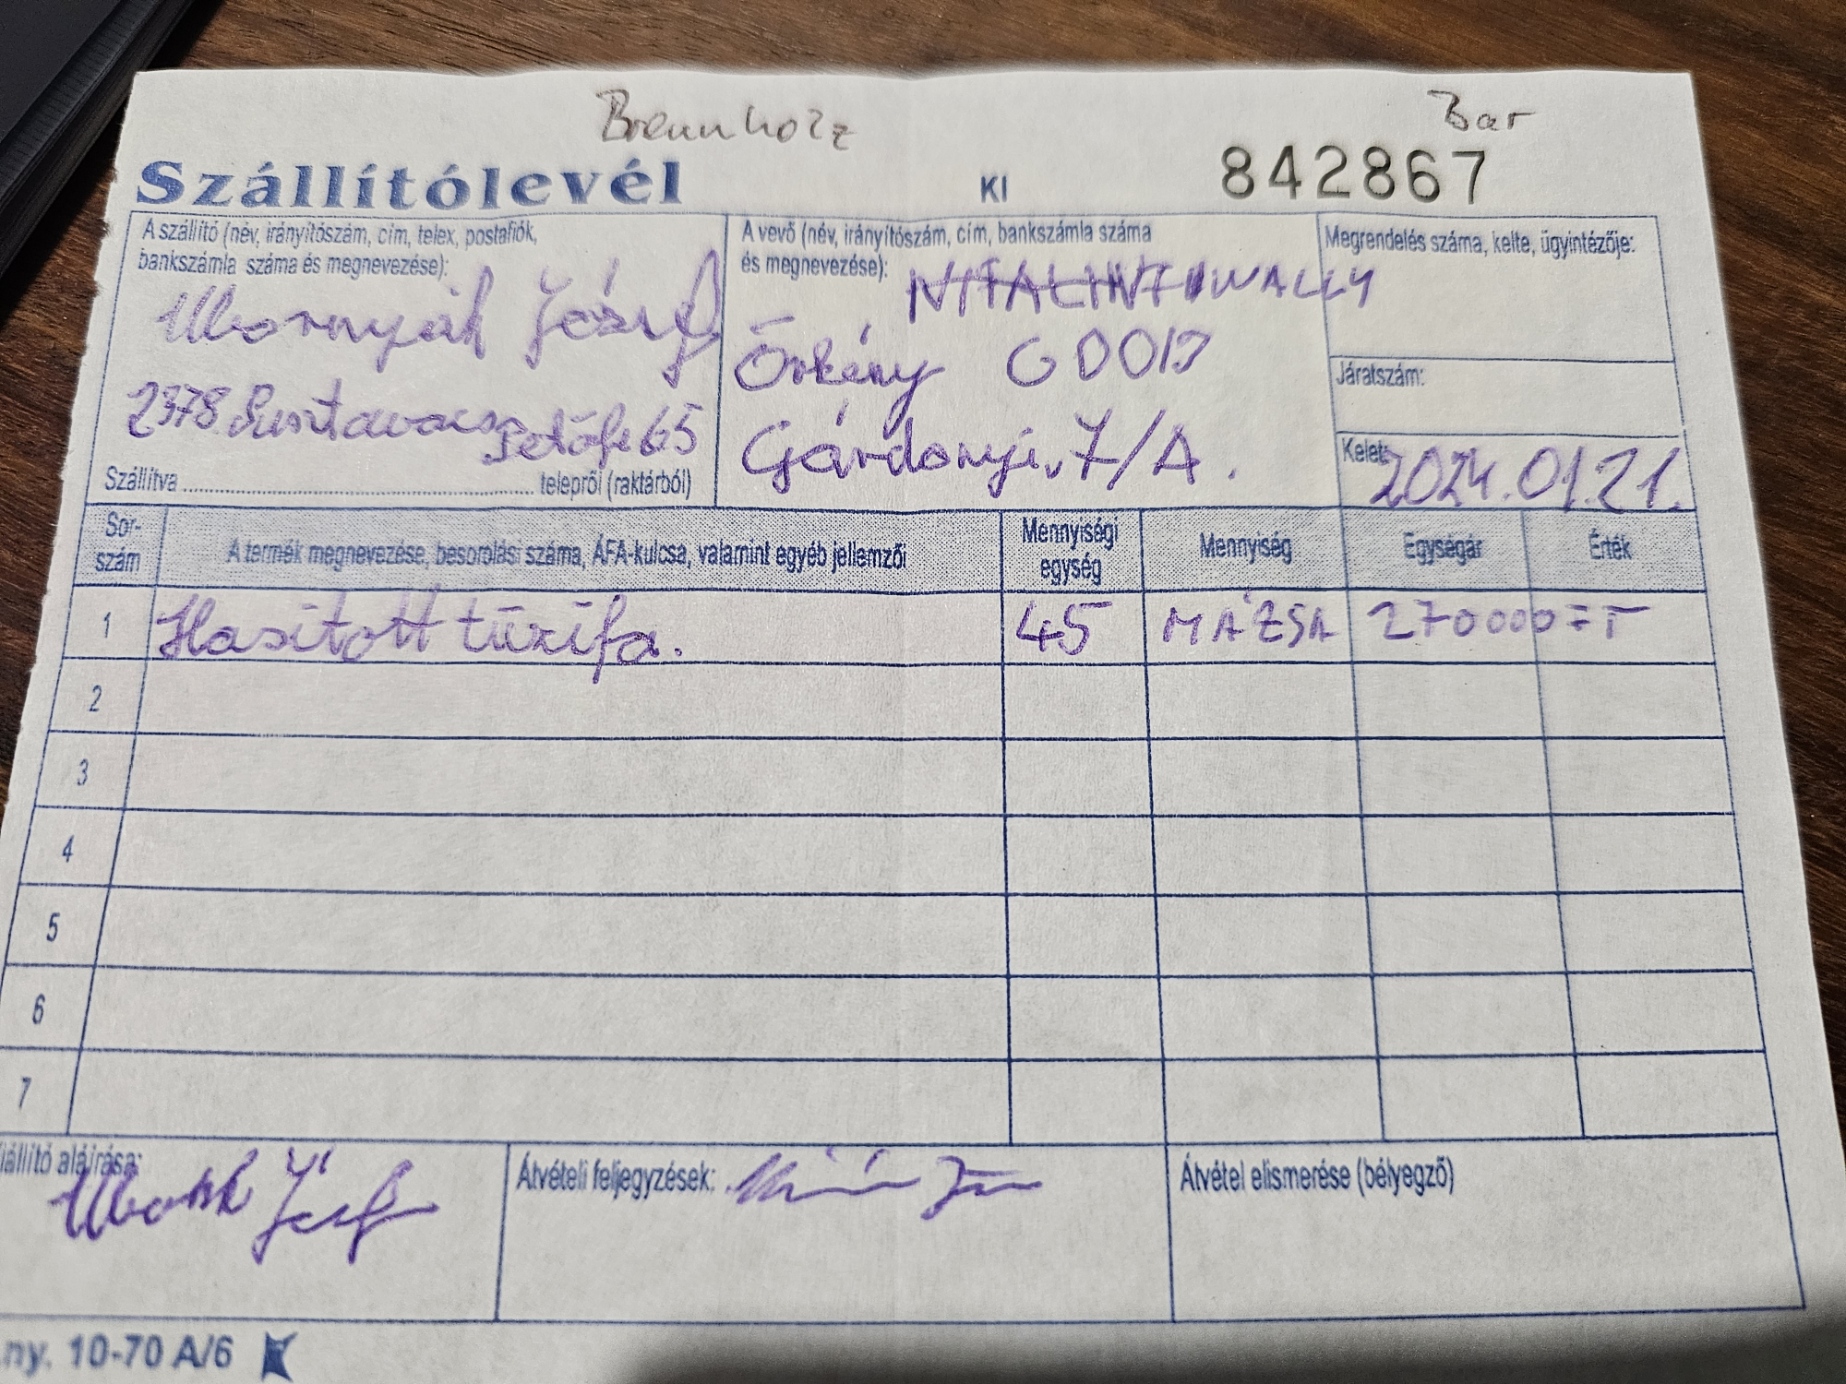 Brennholz Bar
Szállítólevél KI 842867
A szállító (név, irányítószám, cím, telex, postafiók,
bankszámla száma és megnevezése):
József
2378 Pusztavacs
Petőfi 65
Szállítva ........................ telepről (raktárból)
A vevő (név, irányítószám, cím, bankszámla száma
és megnevezése):
Örkény
Gárdonyi. 7/A.
Megrendelés száma, kelte, ügyintézője:
Járatszám:
Kelet: 2024.01.21.
Sor-
szám
A termék megnevezése, besorolási száma, ÁFA-kulcsa, valamint egyéb jellemzői
Mennyiségi
egység
Mennyiség
Egységár
Érték
1 Hasitott tüzifa. 45 MÁZSA 270000
2
3
4
5
6
7
aláírása:
József
Átvételi feljegyzések:
Átvétel elismerése (bélyegző)
ny. 10-70 A/6